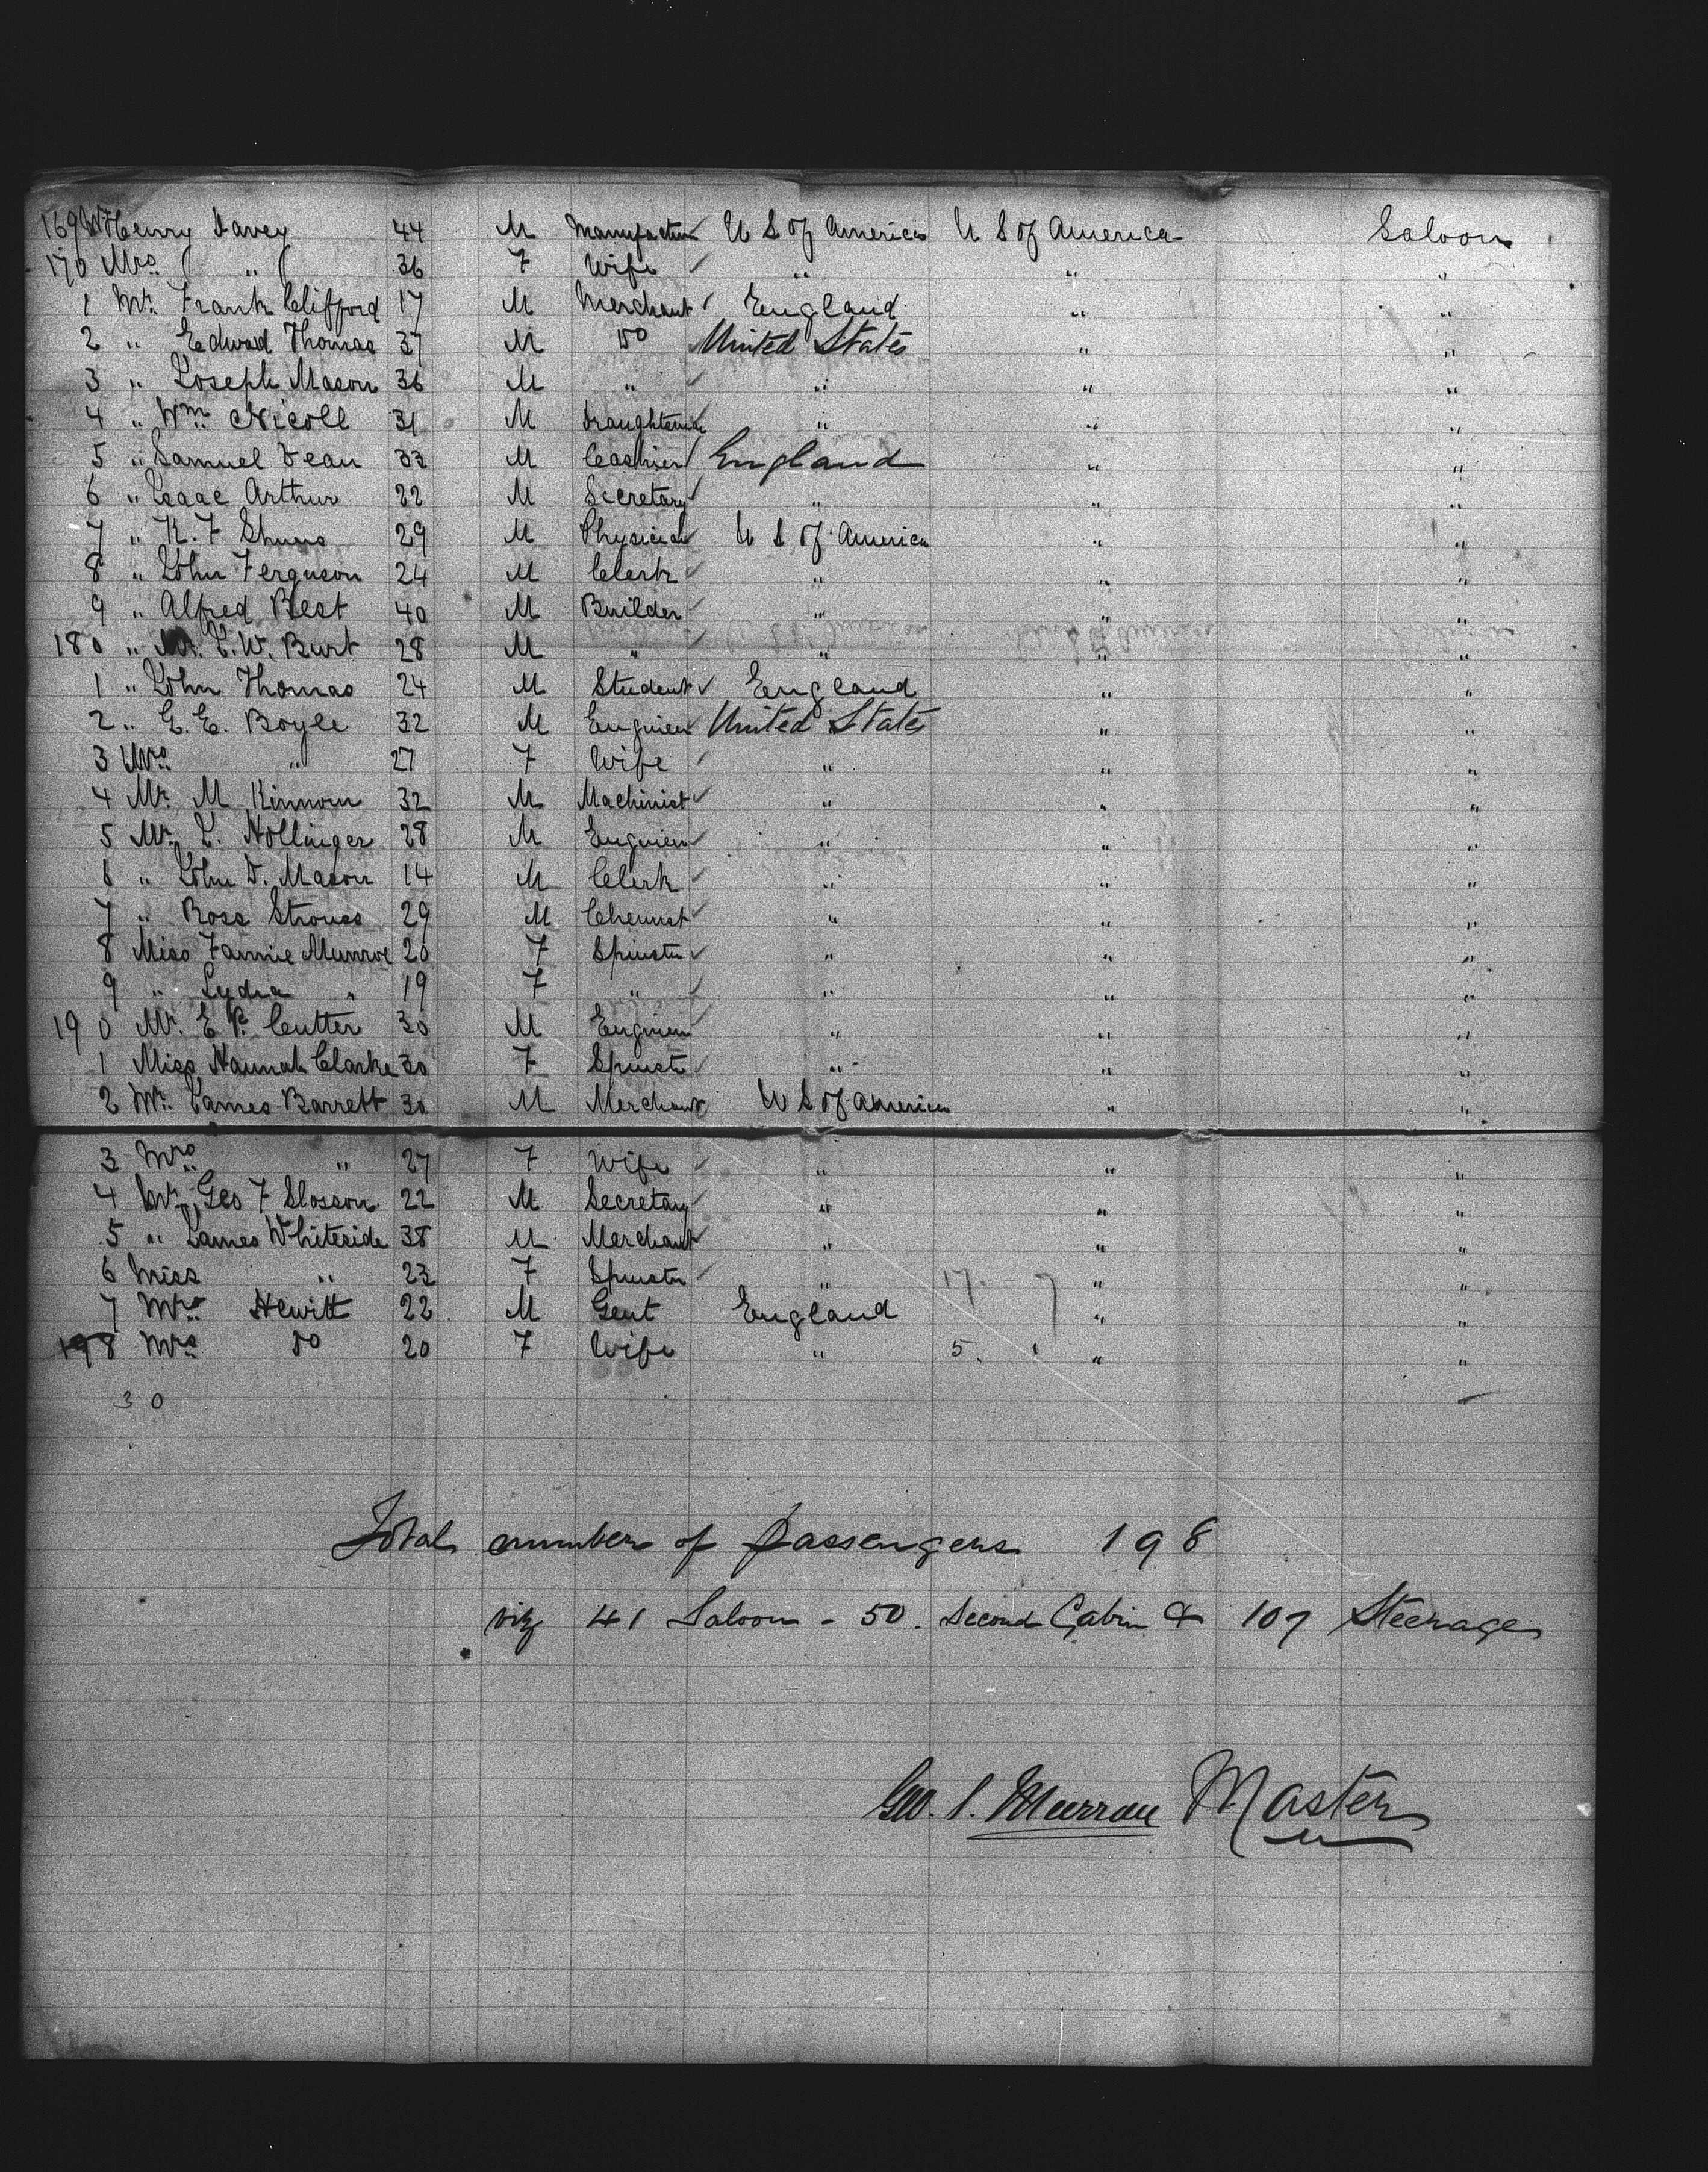 169 Mr Henry Davey 44 M Manufactur U S of America U S of America Saloon
170 Mrs " 36 F Wife " " "
1 Mr. Frank Clifford 17 M Merchant England " "
2 " Edward Thomas 37 M Do United States " "
3 " Joseph Mason 36 M " " " "
4 " Wm Nicoll 31 M Draughtsman " " "
5 " Samuel Dean 33 M Cashier England " "
6 " Isaac Arthur 22 M Secretary " " "
7 " K. F 29 M Physician U S of America " "
8 " John Ferguson 24 M Clerk " " "
9 " Alfred Best 40 M Builder " " "
180 " J. W. Burt 28 M " " " "
1 " John Thomas 24 M Student England " "
2 " G. E. Boyle 32 M Engineer United States " "
3 Mrs " 27 F Wife " " "
4 Mr. M 32 M Machinist " " "
5 Mr. J. Hollinger 28 M Engineer " " "
6 " John D. Mason 14 M Clerk " " "
7 " Ross 29 M Chemist " " "
8 Miss Fannie Munroe 20 F Spinster " " "
9 " Lydia " 19 F " " " "
190 Mr. E P. Cutter 30 M Engineer " " "
1 Miss Hannah Clarke 30 F Spinster " " "
2 Mr. James Barrett 30 M Merchant U S of America " "
3 Mrs " 27 F Wife " " "
4 Mr. Geo F Slosson 22 M Secretary " " "
5 " James Whiteside 38 M Merchant " " "
6 Miss " 23 F Spinster " 17. "  "
7 Mr. Hewitt 22 M Gent England " "
198 Mrs Do 20 F Wife " 5. " "
30
Total number of passengers 198
viz 41 Saloon - 50. Second Cabin & 107 Steerage
Geo. S. Murray Master